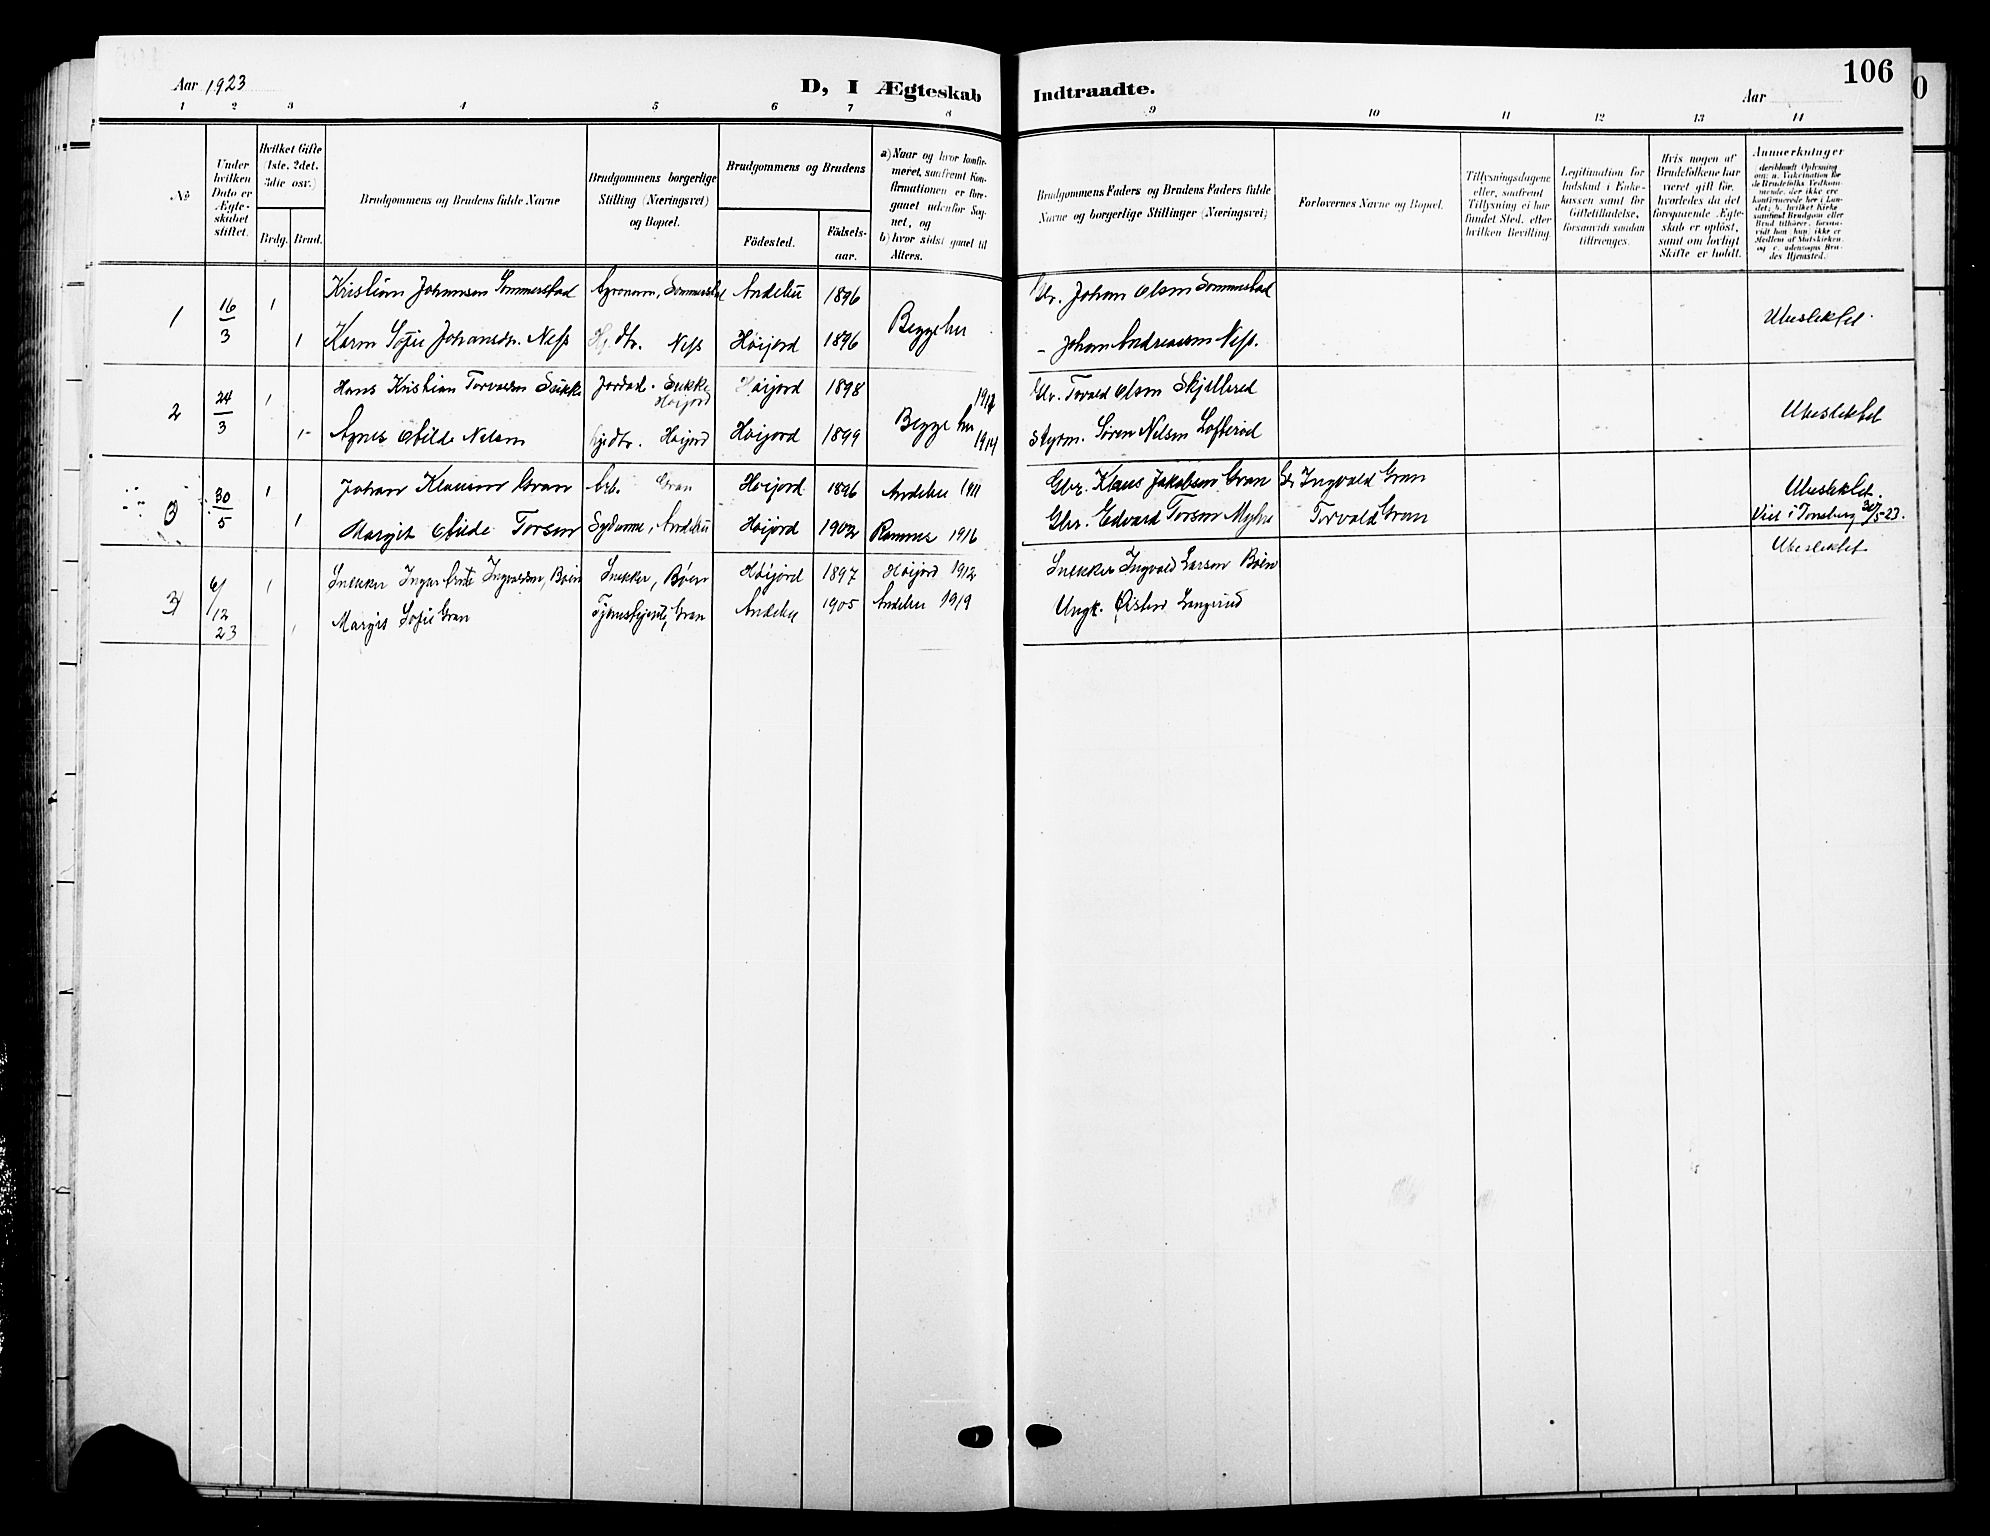 Aar 1923
D, I Ægteskab Indtraadte.
Aar
106
1 2 3 4 5 6 7 8 9 10 11 12 13 14
No
Under hvilken Dato er Ægteskabet stiftet.
Hvilket Gifte 1ste, 2det, 3die osv.)
Brdg. Brud.
Brudgommens og Brudens fulde Navne
Brudgommens borgerlige Stilling (Næringsvei) og Bopæl.
Brudgommens og Brudens
Födested.
Födselsaar.
a) Naar og hvor konfirmeret, samfremt Konfirmationen er foregaaet udenfor Sognet, og
b) hvor sidst gaaet til Alters.
Brudgommens Faders og Brudens Faders fulde Navne og borgerlige Stillinger (Næringsvei)
Forlovernes Navne og Bopæl.
Tillysningsdagene eller, saafremt Tillysning ei har fundet Sted, efter hvilken Bevilling.
Legitimation for Indskud i Enkekassen samt for Giftetilladelse, forsaavidt saadan tiltrænges.
Hvis nogen af Brudefolkene har været gift før, hvorledes da det foregaaende Ægteskab er oplöst, samt om lovligt Skifte er holdt.
Anmerkninger
1 16/3 1 Kristian Johansen Sommerstad Agronom, Sommerstad Andebu 1896 Begge her Gbr. Johan Olsen Sommerstad Ubeslektet.
1 Karen Sofie Johansdr. Ness Hj. dtr. Ness Høijord 1896 - Johan Andreassen Ness.
2 24/3 1 Hans Kristian Torvaldsen Sukke Jordarb. Sukke Høijord Høijord 1898 Begge her 1912 Gbr. Torvald Olsen Skjellerød Ubeslektet
1 Agnes Otilde Nelsen Hjdtr. Høijord Høijord 1899 1914 Styrm. Søren Nelsen Løfterød
3 30/5 1 Johan Klausen Gran Arb. Gran Høijord 1896 Andebu 1911 Gbr. Klaus Jakobsen Gran Ingvald Gran Ubeslektet.
1 Margit Otilde Torsen Sydame, Andebu Høijord 1902 Ramnes 1916 Gbr. Edvard Torsen Myhre Torvald Gran Viet i Tønsberg 30/5-23.
6/12 23 1 Snekker Ingar Ingvaldsen, Bøen Snekker, Bøen Høijord 1897 Høijord 1912 Snekker Ingvald Larsen Bøen Ubeslektet
1 Margit Sofie Gran Tjenestejente, Gran Andebu 1905 Andebu 1919 Ungk. Øisten Langerud